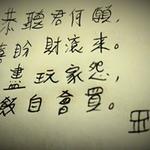 恭聽君何願，
喜盼財滾來。
盡玩家怨，
飯自會買。